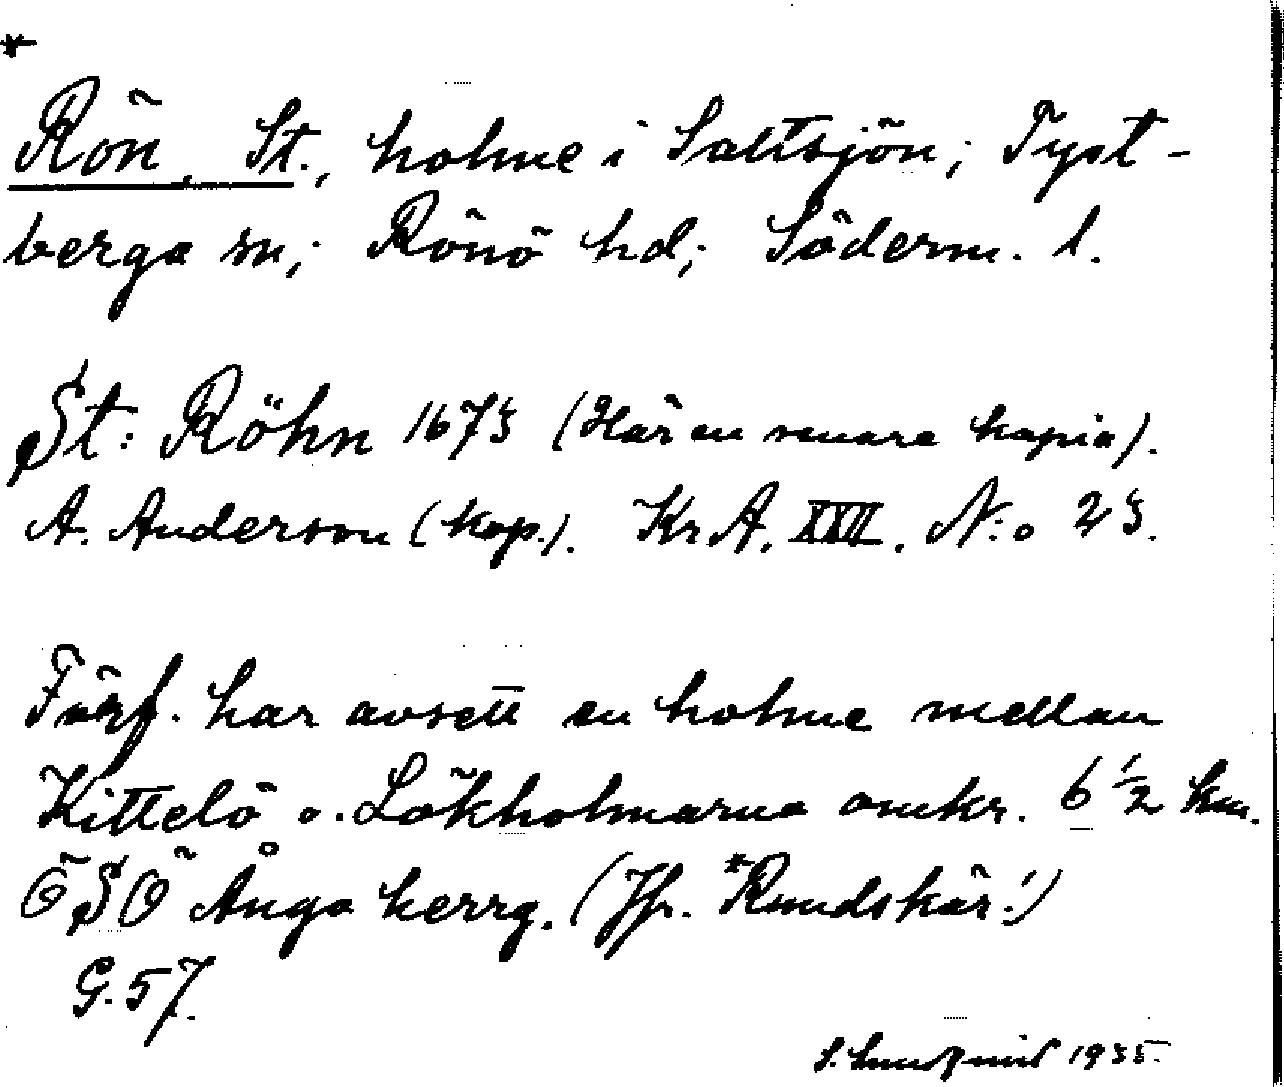 *
Rön, St., holme i Saltsjön; Tyst-
berga sn; Rönö hd; Söderm. l.
St: Röhn 1673 (Här en senare kopia).
A. Anderson (kop.). Kr A. XXVI. N:o 23.
Förf. har avsett en holme mellan
Kittelö o. Lökholmarna omkr. 6 1/2 km.
ÖSÖ Ånga herrg. (Jfr. *Rundskär!)
G. 57.
S. 1935.